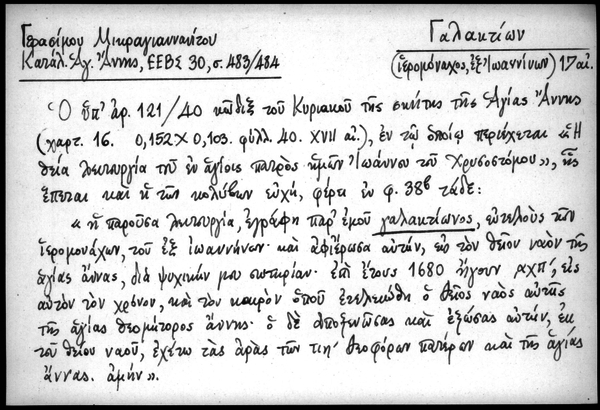 Γερασίμου Μικραγιαννανίτου
Κατάλ. Ἁγ. Ἄννης, ΕΕΒΣ 30, σ. 483/484
Γαλακτίων
(ἱερομόναχος, ἐξ Ἰωαννίνων) 17 αἰ.
Ὁ ὑπ' ἀρ. 121/40 κῶδιξ τοῦ Κυριακοῦ τῆς σκήτης τῆς Ἁγίας Ἄννης
(χαρτ. 16. 0,152 Χ 0,103. φύλλ. 40. XVII αἰ.), ἐν τῷ ὁποίῳ περιέχεται «Ἡ
θεία λειτουργία τοῦ ἐν ἁγίοις πατρὸς ἡμῶν Ἰωάννου τοῦ Χρυσοστόμου», ἧς
ἕπεται καὶ ἡ τῶν κολύβων εὐχή, φέρει ἐν φ. 38β τάδε:
«ἡ παροῦσα λειτουργία, ἐγράφη παρ' ἐμοῦ γαλακτίωνος, εὐτελοῦς τῶν
ἱερομονάχων, τοῦ ἐξ ἰωαννήνων· καὶ ἀφιέρωσα αὐτήν, εἰς τὸν θεῖον ναὸν τῆς
ἁγίας ἄννας, διὰ ψυχικήν μου σωτηρίαν· ἐπὶ ἔτους 1680 ἤγουν αχπ', εἰς
αὐτὸν τὸν χρόνον, καὶ τὸν καιρὸν ὁποῦ ἐτελειώθη ὁ θεῖος ναὸς αὐτῆς
τῆς ἁγίας θεομήτορος ἄννης· ὁ δὲ ἀποξενώσας καὶ ἐξώσας αὐτήν, ἐκ
τοῦ θείου ναοῦ, ἐχέτω τὰς ἀρὰς τῶν τιη' θεοφόρων πατέρων καὶ τῆς ἁγίας
ἄννας. ἀμήν».